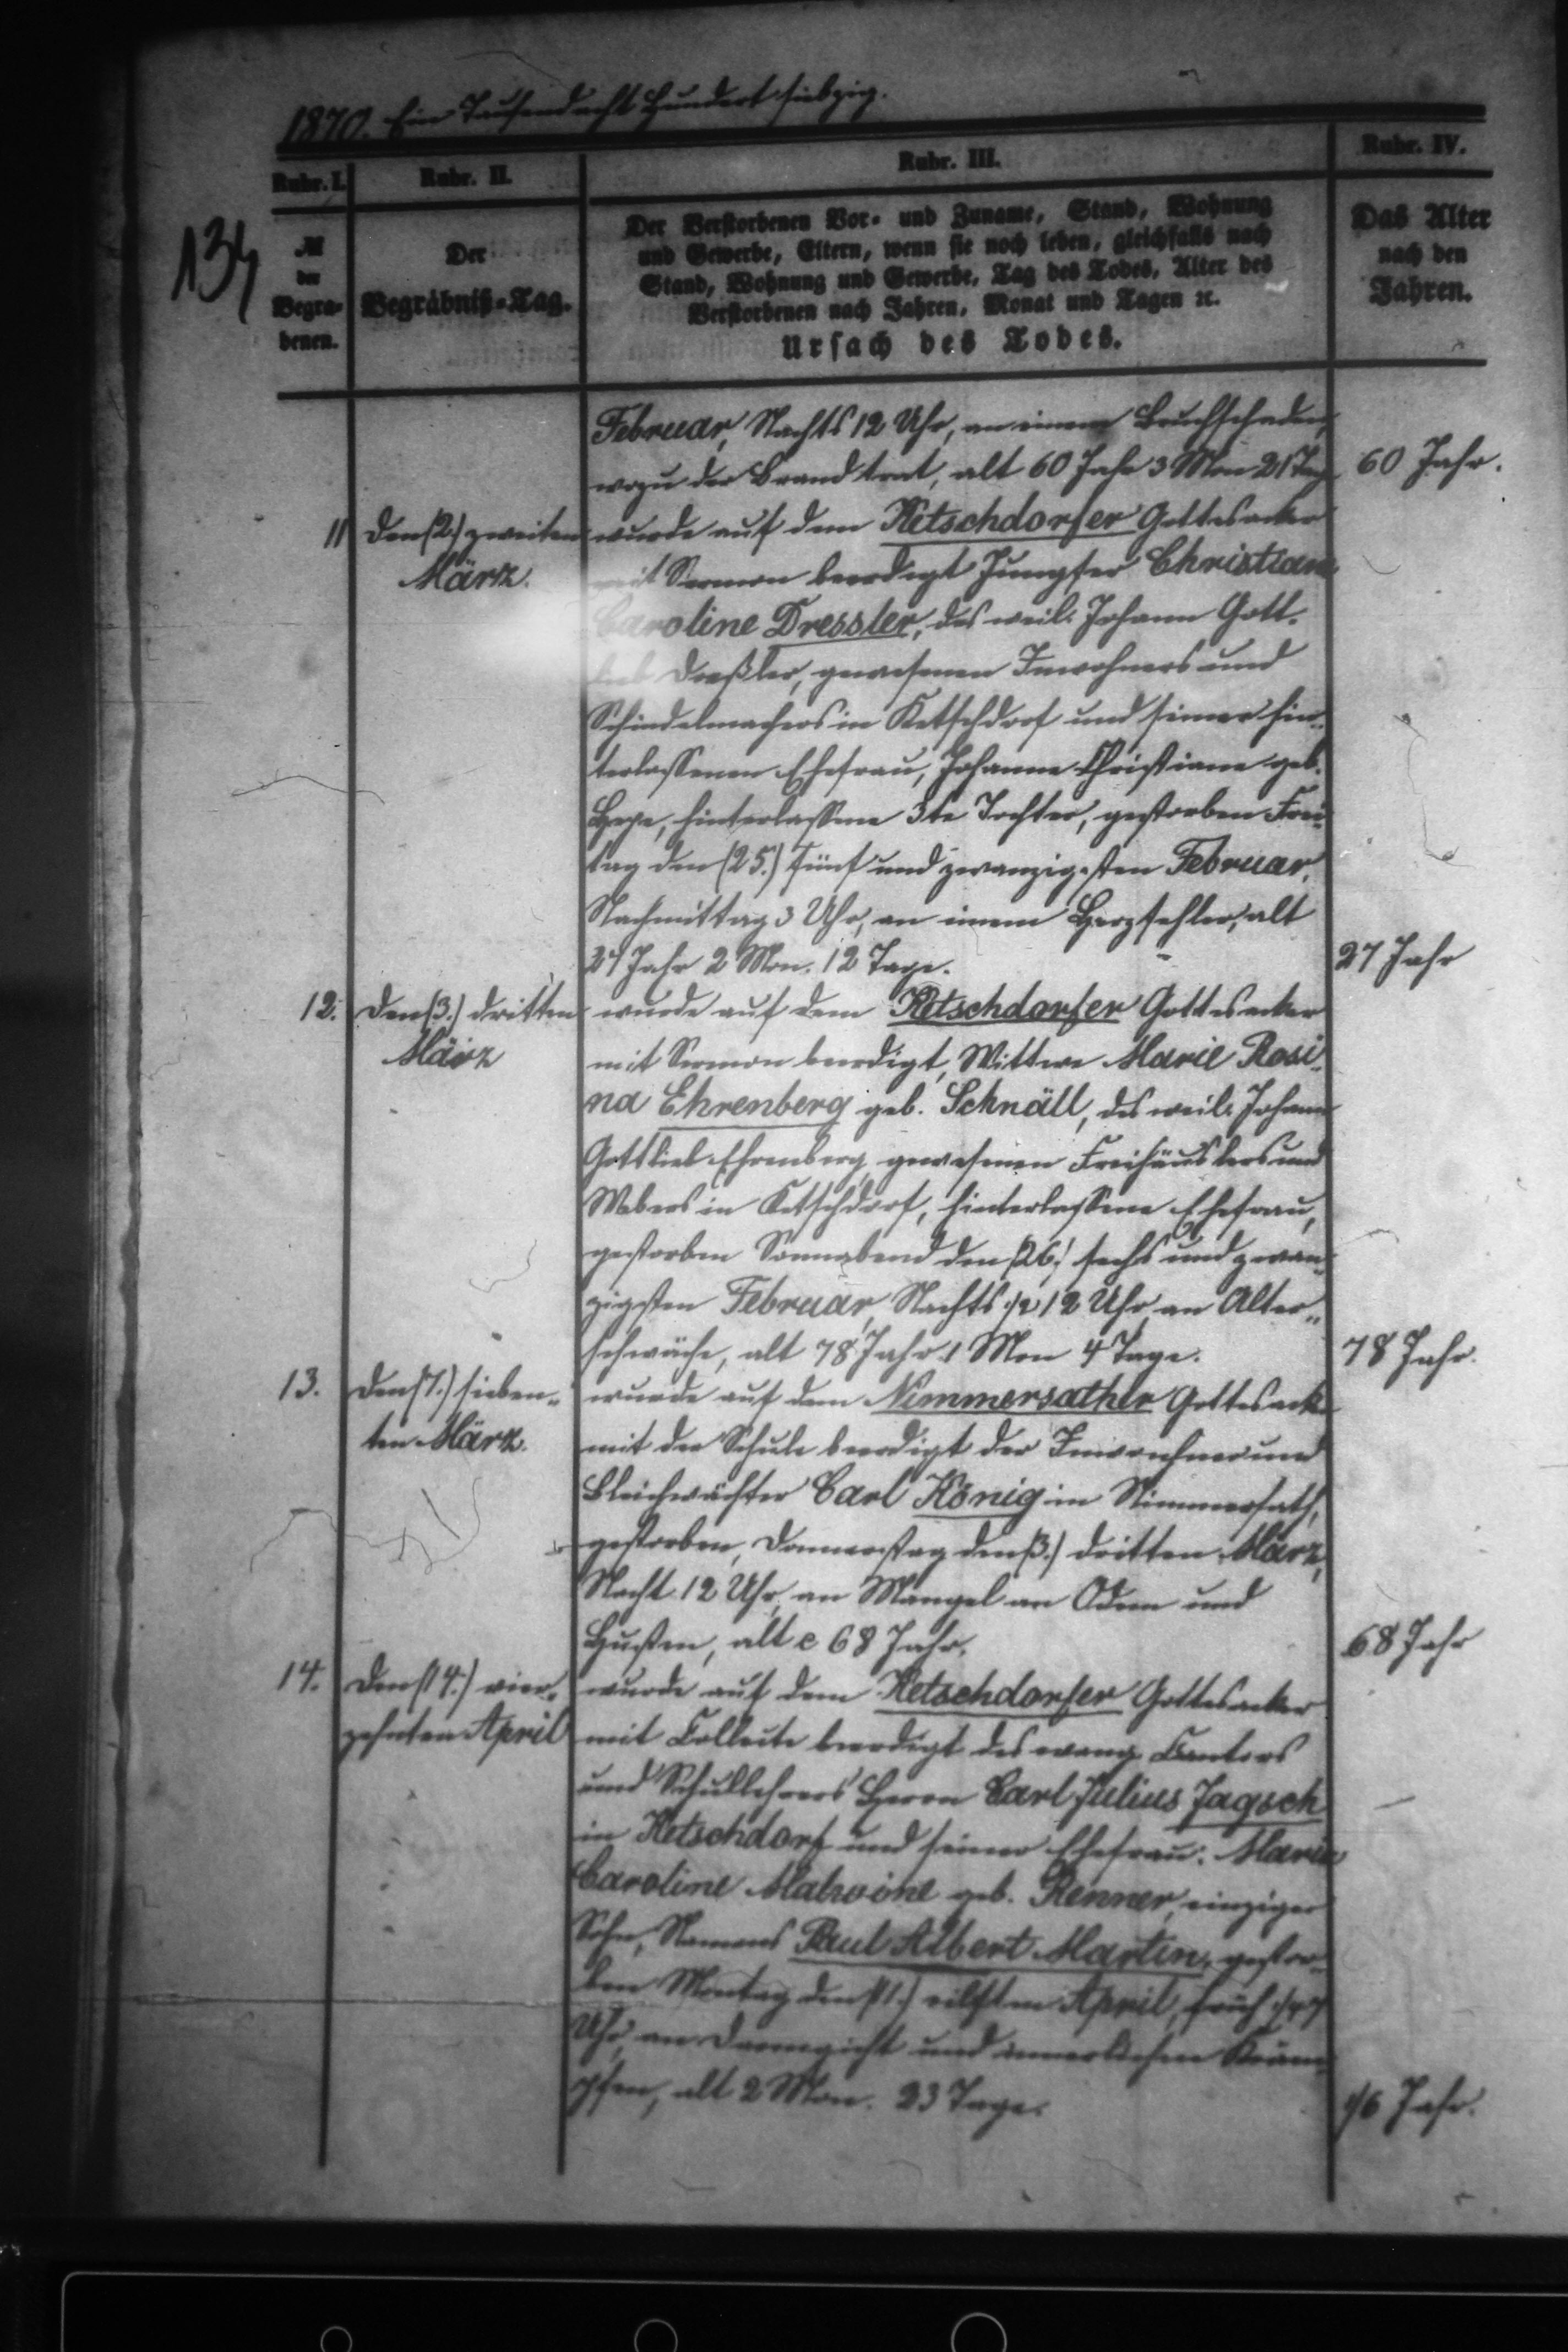 1870. Ein Tausend acht Hundert siebzig.
134
Rubr. I. Rubr. II. Rubr. III. Rubr. IV.
№ der Begrabenen.
Der Begräbniß-Tag.
Der Verstorbenen Vor- und Zuname, Stand, Wohnung
und Gewerbe, Eltern, wenn sie noch leben, gleichfalls nach
Stand, Wohnung und Gewerbe, Tag des Todes, Alter des
Verstorbenen nach Jahren, Monat und Tagen ꝛc.
Ursach des Todes.
Das Alter
nach den
Jahren.
Februar, Nachts 12 Uhr, an einem Bruchschaden,
wozu der Brand trat, alt 60 Jahr 3 Mon 21 Tag 60 Jahr.
11 Den (2.) zweiten wurde auf dem Ketschdorfer Gottesacker
März. mit Sermon beerdigt Jungfer Christiane
Caroline Dressler, des weil. Johann Gott-
lieb Dreßler, gewesenen Inwohners und
Schindelmachers in Ketschdorf und seiner hin-
terlassenen Ehefrau, Johanne Christiane geb.
hinterlassene 3te Tochter, gestorben Frei-
tag den (25.) fünf und zwanzigsten Februar,
Nachmittag 3 Uhr, an einem Herzfehler, alt
27 Jahr 2 Mon. 12 Tage. 27 Jahr
12. Den (3.) dritten wurde auf dem Ketschdorfer Gottesacker
März mit Sermon beerdigt, Wittwe Marie Rosi-
na Ehrenberg geb. Schnäll, des weil. Johann
Gottlieb Ehrenberg gewesenen Freihäuslers und
Webers in Ketschdorf, hinterlassene Ehefrau,
gestorben Sonnabend den (26.) sechs und zwan-
zigsten Februar, Nachts 1/2 12 Uhr an Alter-
schwäche, alt 78 Jahr 1 Mon 4 Tage. 78 Jahr.
13. Den (7.) sieben- wurde auf dem Nimmersather Gottesacker
ten März. mit der Schule beerdigt der Inwohner und
Bleichwächter Carl König in Nimmersath,
gestorben, Donnerstag den (3.) dritten März,
Nacht 12 Uhr, an Mangel an Odem und
Husten, alt c 68 Jahr. 68 Jahr
14. Den (14.) vier- wurde auf dem Ketschdorfer Gottesacker
zehnten April mit Collecte beerdigt des evang. Cantors
und Schullehrers Herrn Carl Julius Jagsch
in Ketschdorf und seiner Ehefrau: Marie
Caroline Malwine geb. Renner, einziger
Sohn, Namens Paul Albert Martin, gestor-
ben Montag den (11.) eilften April, früh 1/4 7
Uhr, an Darmgicht und innerlichen Kräm-
pfen, alt 2 Mon. 23 Tage. 1/6 Jahr.